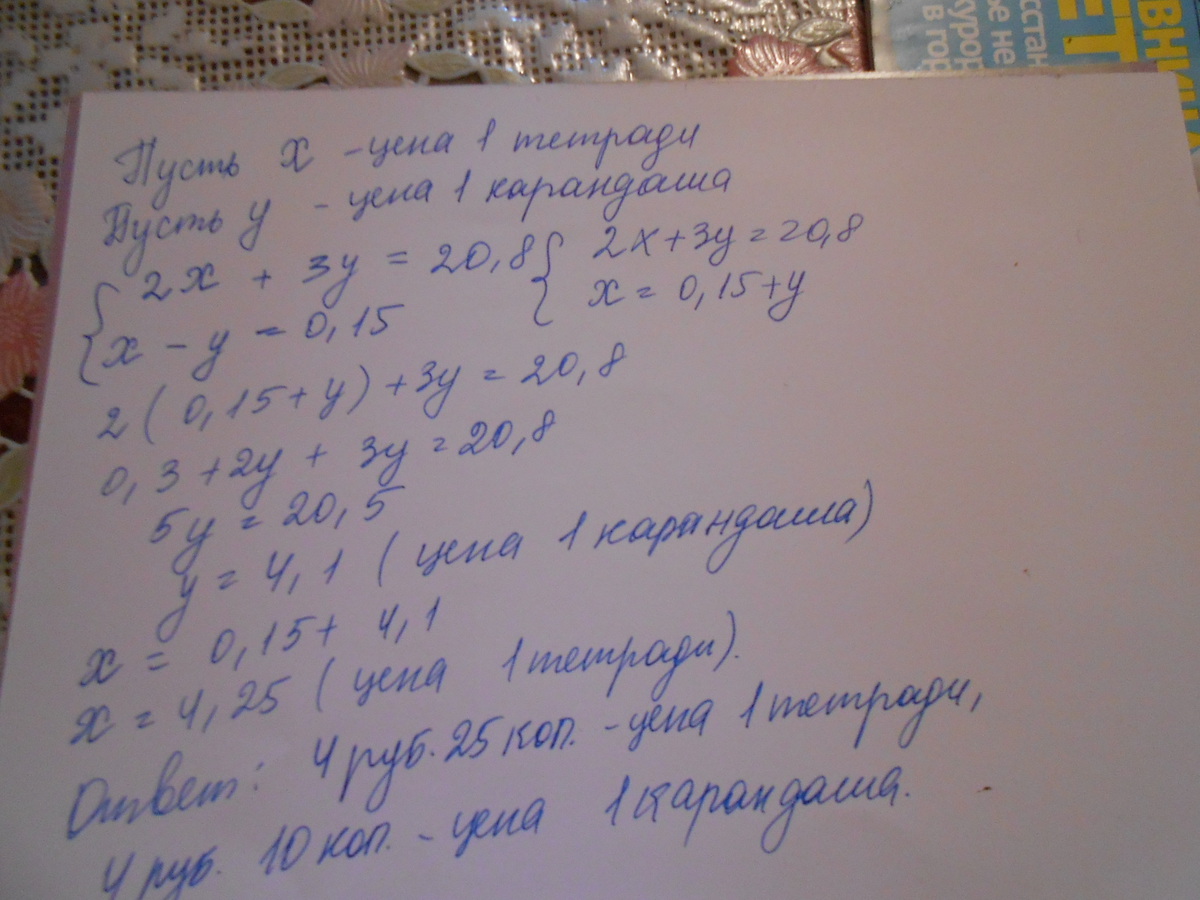 Пусть x - цена 1 тетради
Пусть y - цена 1 карандаша
{ 2x + 3y = 20,8 { 2x+3y=20,8
{ x - y = 0,15 { x = 0,15+y
2( 0,15+y)+3y=20,8
0,3+2y+3y=20,8
5y=20,5
y=4,1 ( цена 1 карандаша)
x = 0,15+ 4,1
x = 4,25 ( цена 1 тетради).
Ответ: 4 руб. 25 коп. - цена 1 тетради,
4 руб. 10 коп. - цена 1 карандаша.
ВНИ
ЕТ
сстан
ье не
курор
в гор